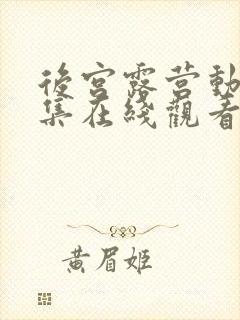 後宮露营動
集在綫觀看
黄眉姬